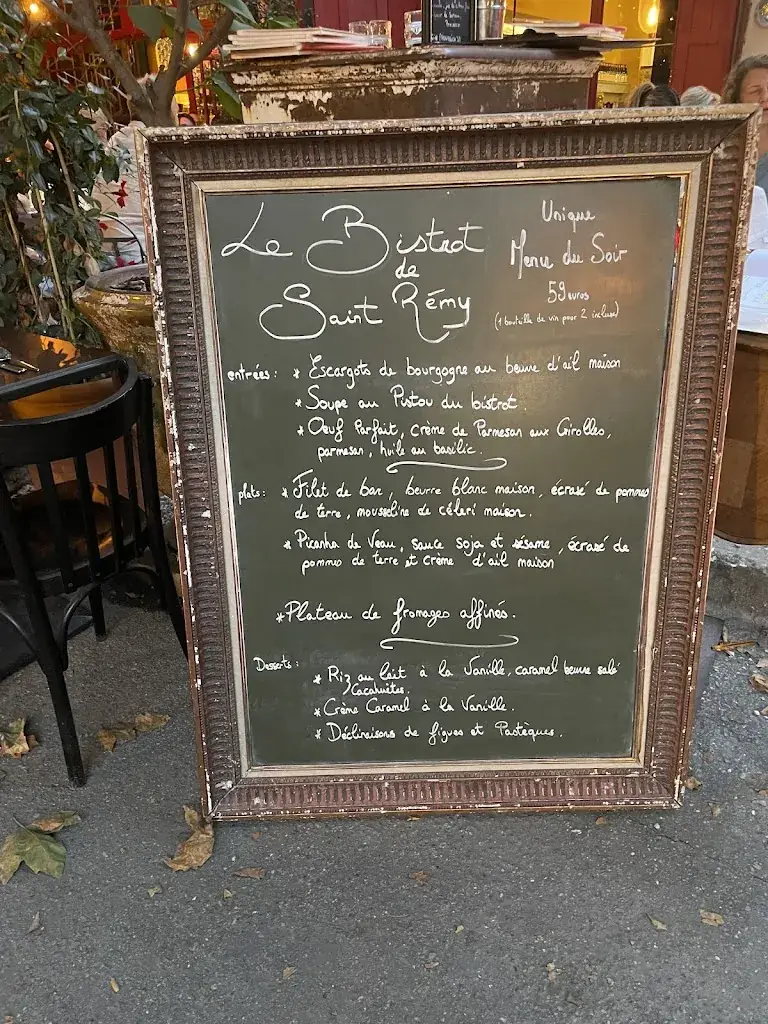 Le Bistrot
de
Saint Rémy
Unique
Menu du Soir
59 euros
(1 bouteille de vin pour 2 incluse)
entrées : * Escargots de bourgogne au beurre d'ail maison
* Soupe au Pistou du bistrot.
* Oeuf Parfait, crème de Parmesan aux Girolles,
parmesan, huile au basilic.
plats : * Filet de bar, beurre blanc maison, écrasé de pommes
de terre, mousseline de céleri maison.
* Picanha de Veau, sauce soja et sésame, écrasé de
pommes de terre et crème d'ail maison
* Plateau de fromages affinés.
Desserts : * Riz au lait à la Vanille, caramel beurre salé
Cacahuètes.
* Crème Caramel à la Vanille.
* Déclinaisons de figues et Pastèques.